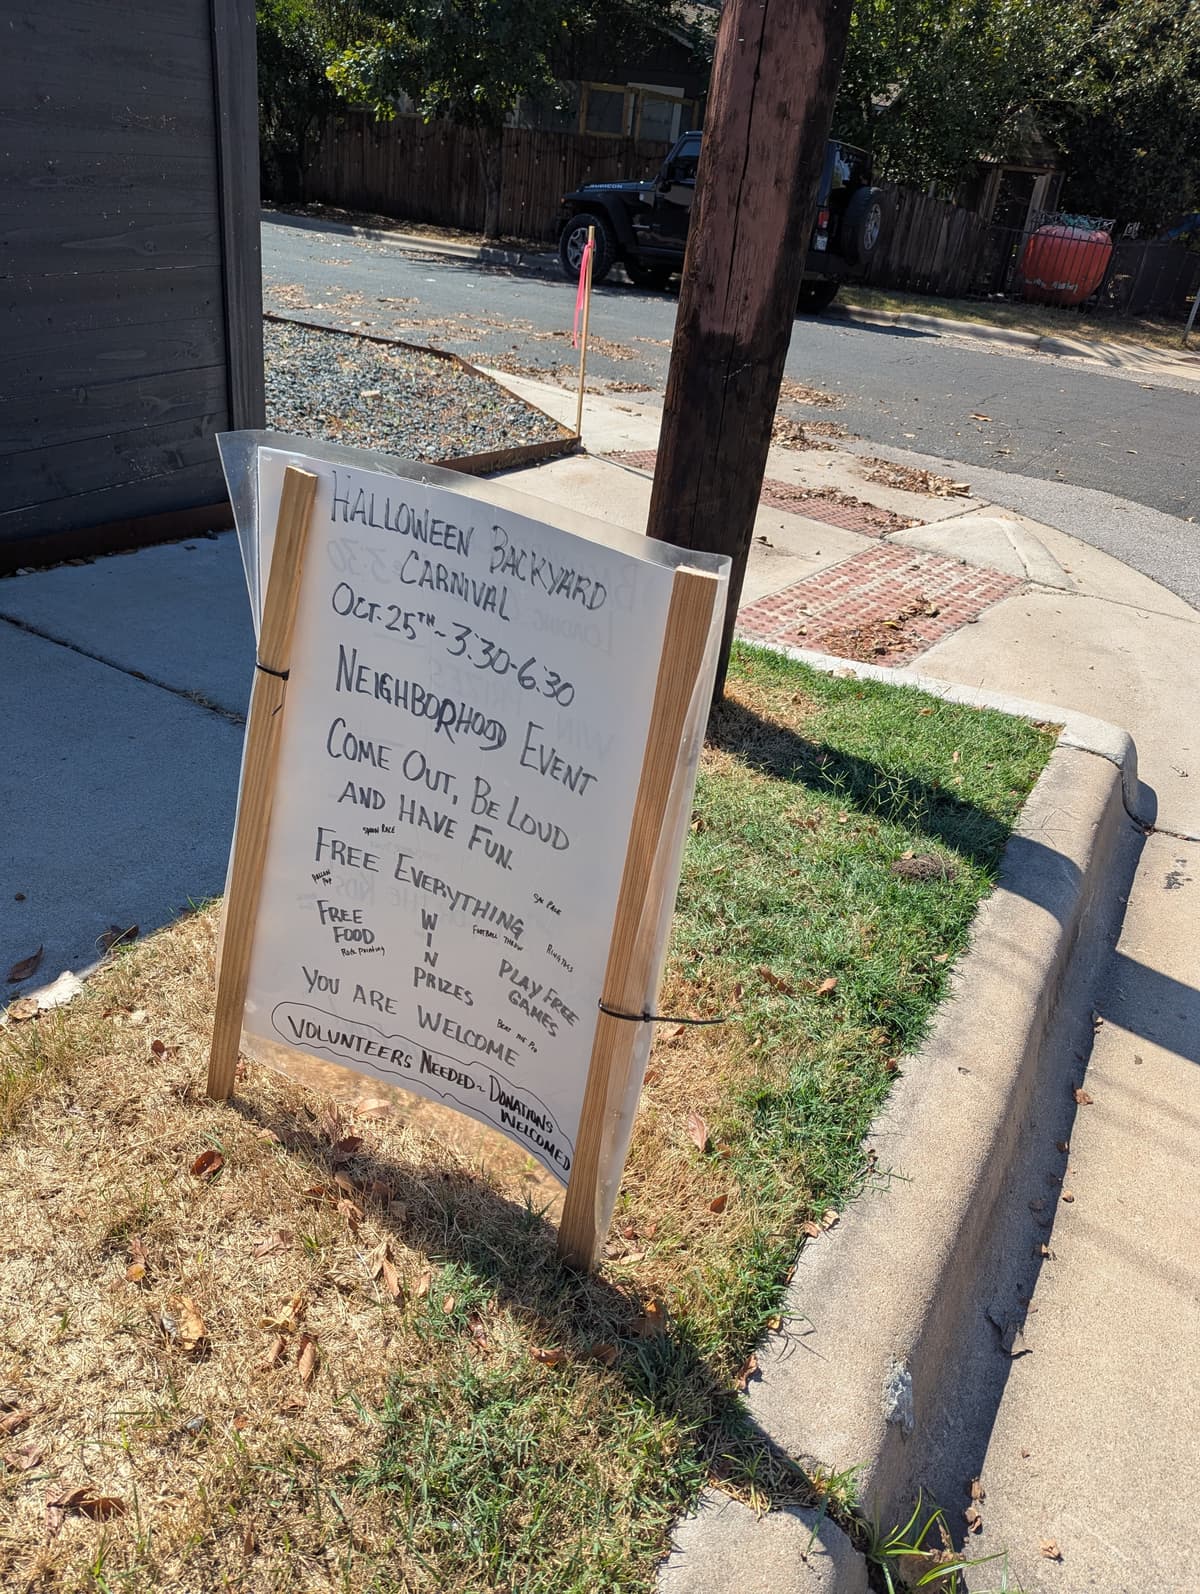 RUBICON
HALLOWEEN BACKYARD
CARNIVAL
OCT. 25TH ~ 3:30-6:30
NEIGHBORHOOD EVENT
COME OUT, BE LOUD
AND HAVE FUN.
SPOON RACE
FREE EVERYTHING
BALLOON POP
SACK RACE
FREE
FOOD
Rock Painting
WIN
PRIZES
FOOTBALL THROW
RING TOSS
PLAY FREE
GAMES
YOU ARE WELCOME
VOLUNTEERS NEEDED ~ DONATIONS
WELCOMED